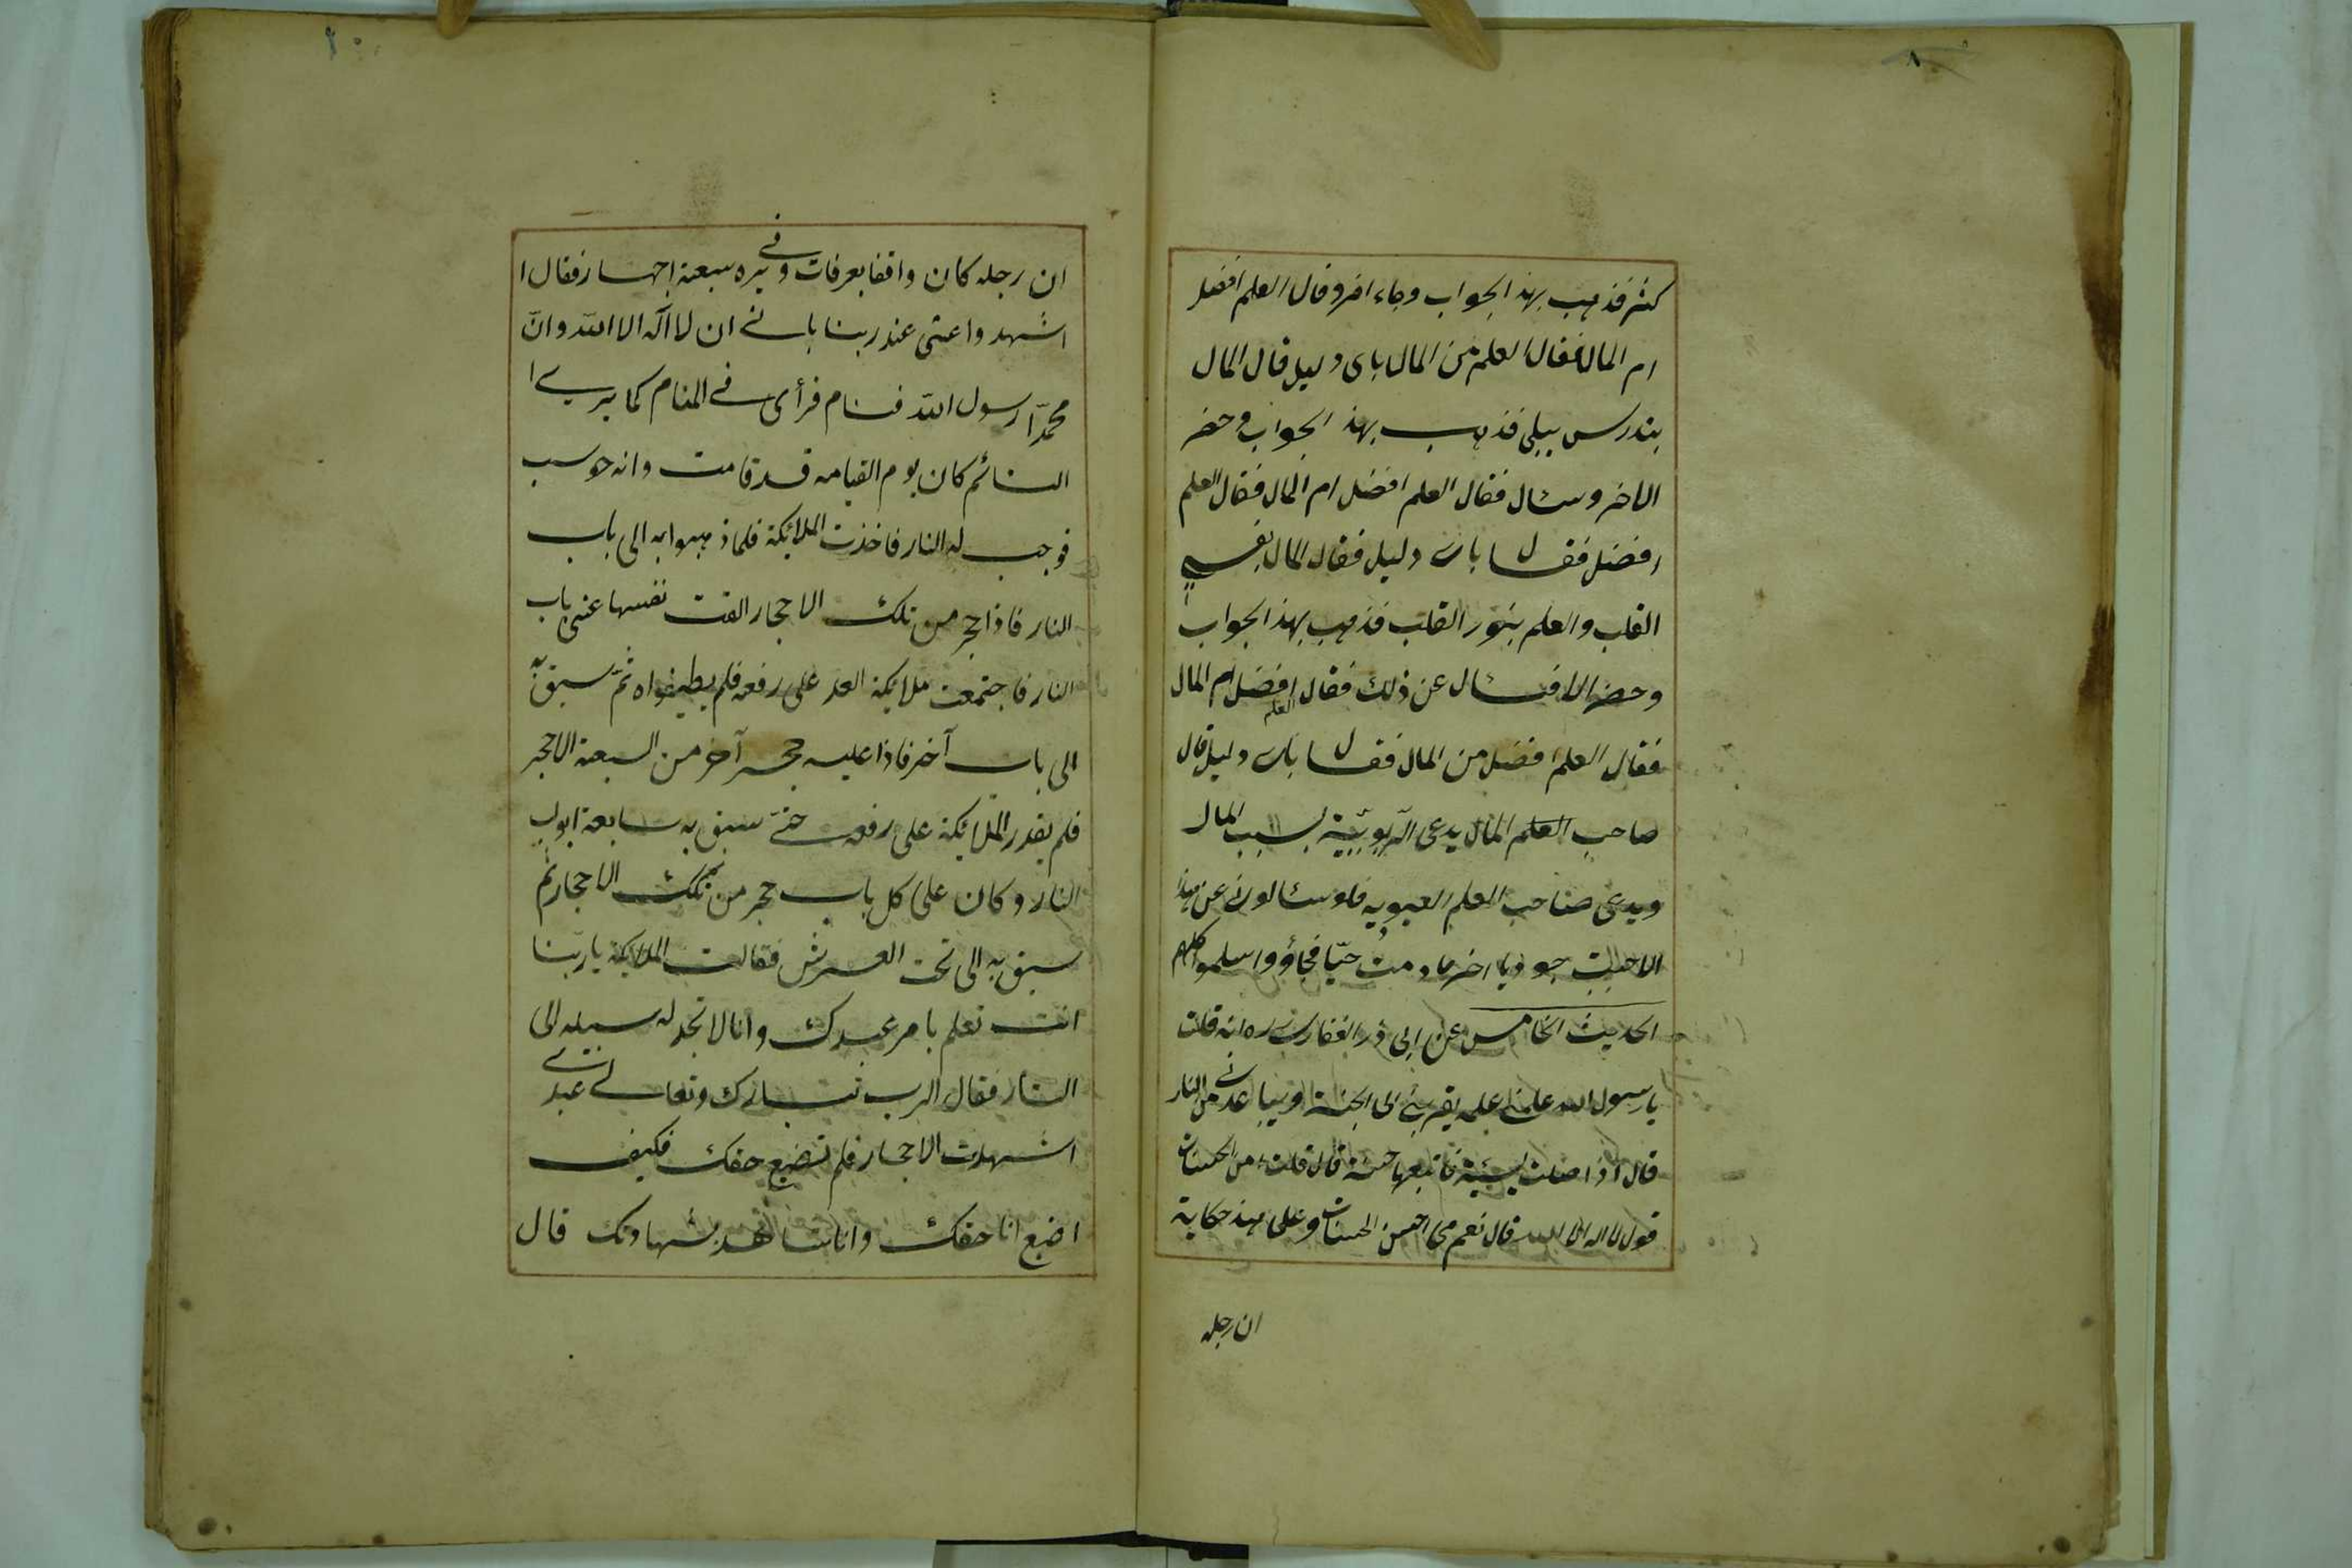 كثر فذهب بهذا الجواب وجاء اخر وقال العلم افضل
ام المال فقال العلم من المال باى دليل قال المال
يندرس يبلى فذهب بهذ الجواب وحضر
الاخر وسئال فقال العلم افضل ام المال فقال العلم
افضل فقال باى دليل فقال المال يقسي
القلب والعلم ينور القلب فذهب بهذ الجواب
وحضر الاخر فسئال عن ذلك فقال العلم افضل ام المال
فقال العلم افضل من المال فقال باى دليل قال
صاحب العلم المال يدعى الربوبية بسبب المال
ويدعى صاحب العلم العبودية فلو سئالونى عن هذا
الاجبت جوابا اخر ما دمت حيّا فجاؤو واسلموا كلهم
الحديث الخامس عن ابى ذر الغفارى ره انه قلت
يا رسول الله علمنى عملا يقربنى الى الجنة ويباعدنى من النار
قال اذا عملت سيئة فاتبعها حسنة قال قلت امن الحسنات
قول لا اله الا الله قال نعم هى احسن الحسنات وعلى هذ حكاية
ان رجله
ان رجله كان واقفا بعرفات وفى يده سبعة احجار فقال ا
اشهد واعنى عند ربنا بانى ان لا اله الا الله وانّ
محمدّا رسول الله فنام فرأى فى المنام كما يرى ا
النائم كان يوم القيامه قد قامت وانه حوسب
فوجب له النار فاخذت الملائكة فلما ذهبوا به الى باب
النار فاذا حجر من تلك الاحجار القت نفسها على باب
النار فاجتمعت ملايكة العذ على رفعه فلم يطيقواه ثمّ سيق به
الى باب آخر فاذا عليه حجر آخر من السبعة الاحجر
فلم يقدر الملائكة على رفعه حتى سيق به سابعة ابواب
النار وكان على كل باب حجر من تلك الاحجار ثم
سيق به الى تحت العرش فقالت الملايكة يا ربّنا
انت تعلم بامر عبدك وانا لا نجد له سبيله الى
النار فقال الرب تبارك وتعالى عبدى
اشهدت الاحجار فلم تضيع حقك فكيف
اضيع انا حقك وانا شاهد بشهادتك قال